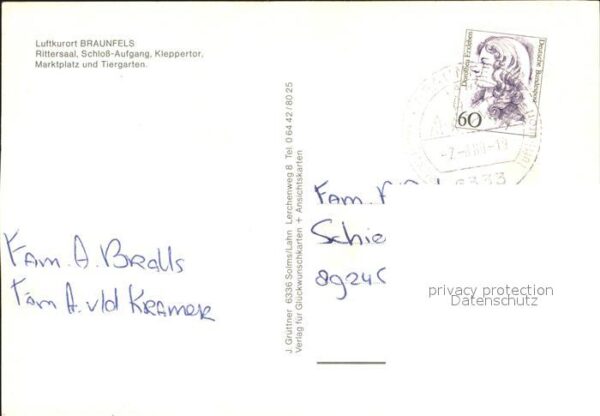 Luftkurort BRAUNFELS
Rittersaal, Schloß-Aufgang, Kleppertor,
Marktplatz und Tiergarten.
Fam. A. Bralls
Fam A. vld Kramer
J. Grüttner 6336 Solms/Lahn Lerchenweg 8 Tel. 0 64 42 / 80 25
Verlag für Glückwunschkarten + Ansichtskarten
Dorothea Erxleben
Deutsche Bundespost
60
6333
Fam.
Schie
privacy protection
Datenschutz